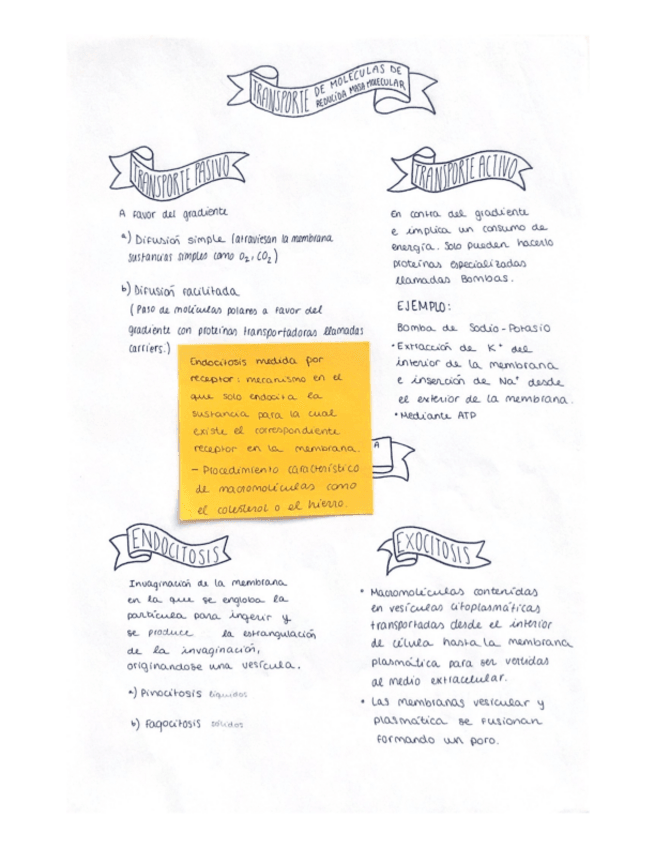 TRANSPORTE DE MOLECULAS DE
REDUCIDA MASA MOLECULAR
TRANSPORTE PASIVO
A favor del gradiente
a) Difusión simple (atraviesan la membrana
sustancias simples como O2, CO2)
b) Difusión facilitada
(Paso de moléculas polares a favor del
gradiente con proteínas transportadoras llamadas
carriers.)
TRANSPORTE ACTIVO
En contra del gradiente
e implica un consumo de
energía. Solo pueden hacerlo
proteínas especializadas
llamadas Bombas.
EJEMPLO:
Bomba de Sodio-Potasio
• Extracción de K+ del
interior de la membrana
e inserción de Na+ desde
el exterior de la membrana.
• Mediante ATP
Endocitosis medida por
receptor: mecanismo en el
que solo endocita la
sustancia para la cual
existe el correspondiente
receptor en la membrana.
- Procedimiento característico
de macromoléculas como
el colesterol o el hierro.
A
ENDOCITOSIS
Invaginación de la membrana
en la que se engloba la
partícula para ingerir y
se produce la estrangulación
de la invaginación,
originandose una vesícula.
a) Pinocitosis líquidos
b) Fagocitosis sólidos
EXOCITOSIS
• Macromoléculas contenidas
en vesículas citoplasmáticas
transportadas desde el interior
de célula hasta la membrana
plasmática para ser vertidas
al medio extracelular.
• Las membranas vesicular y
plasmática se fusionan
formando un poro.